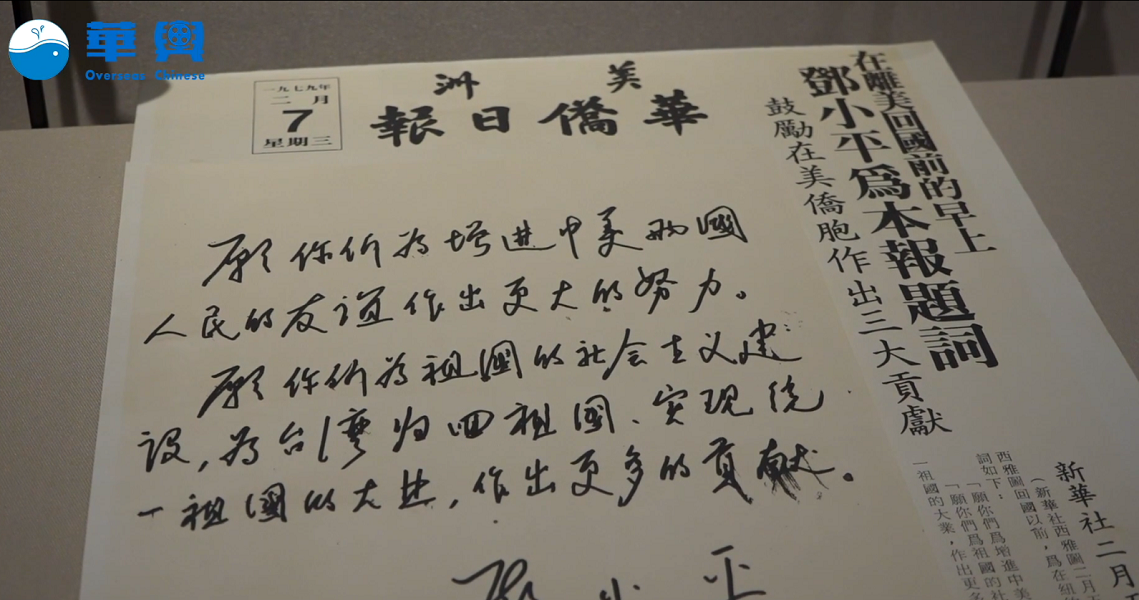 華輿
Overseas Chinese
一九七九年
二月
7
星期三
美洲
華僑日報
在離美回國前的早上
鄧小平為本報題詞
鼓勵在美僑胞作出三大貢獻
愿你们为增进中美两國
人民的友谊作出更大的努力。
愿你们为祖國的社会主义建
设,为台湾归回祖國、实现统
一祖國的大业,作出更多的贡献。
邓小平
新華社二月
(新華社西雅圖二月
西雅圖回國以前,為在紐
詞如下:
「願你們為增進中美
「願你們為祖國的社
一祖國的大業,作出更多